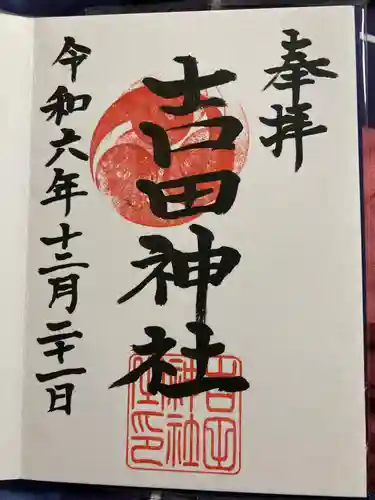 奉拝
吉田神社
令和六年十二月二十一日
吉田神社之印